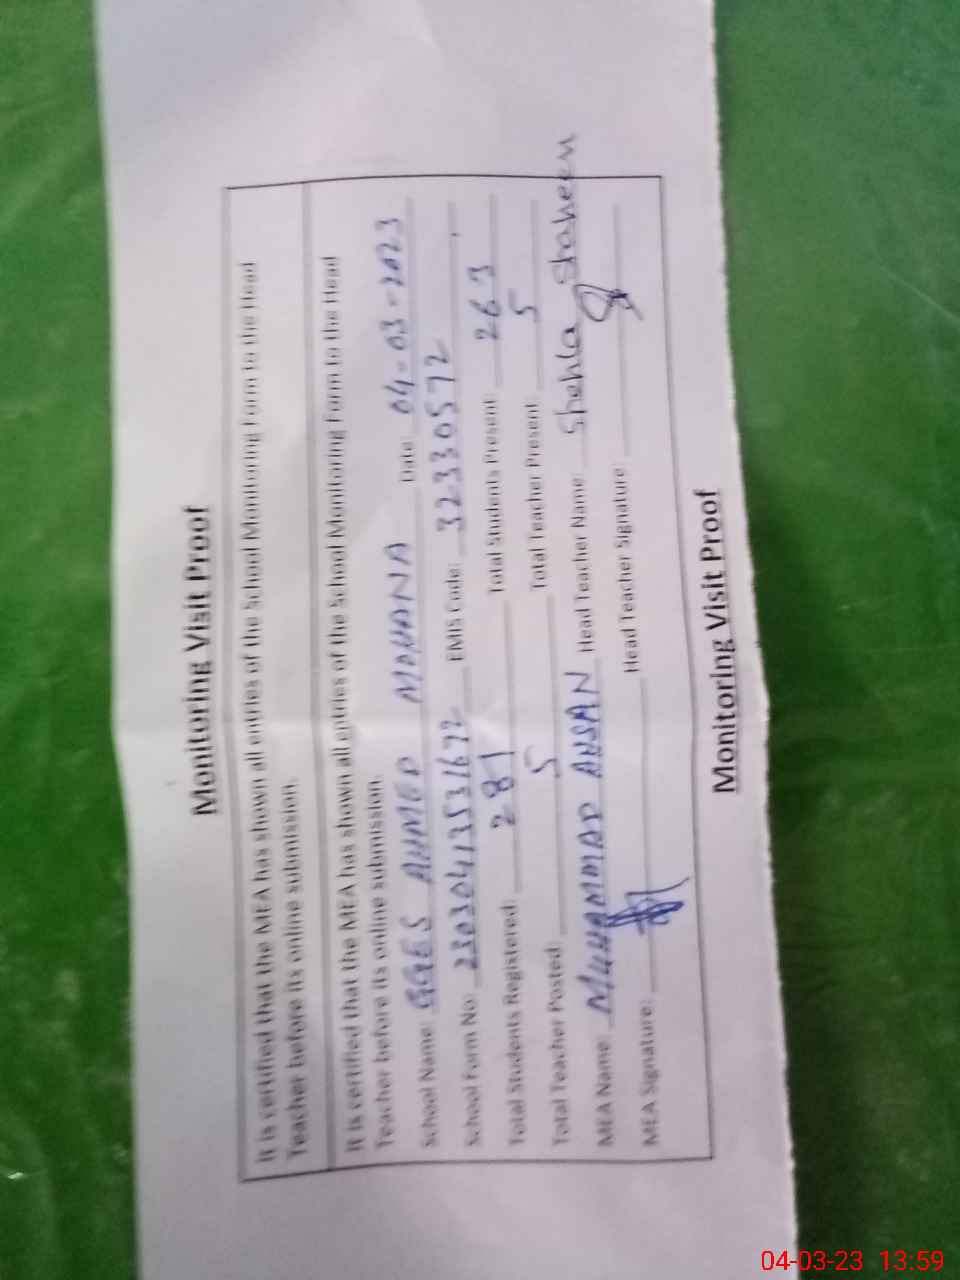 Monitoring Visit Proof
It is certified that the MEA has shown all entries of the School Monitoring Form to the Head
Teacher before its online submission.
It is certified that the MEA has shown all entries of the School Monitoring Form to the Head
Teacher before its online submission.
School Name: GGES AHMED MOHANA Date: 04-03-2023
School Form No: 23030413531672 EMIS Code: 32330572
Total Students Registered: 281 Total Students Present: 263
Total Teacher Posted: 5 Total Teacher Present: 5
MEA Name: MUHAMMAD AHSAN Head Teacher Name: Shehla Shaheen
MEA Signature: Head Teacher Signature:
Monitoring Visit Proof
04-03-23 13:59